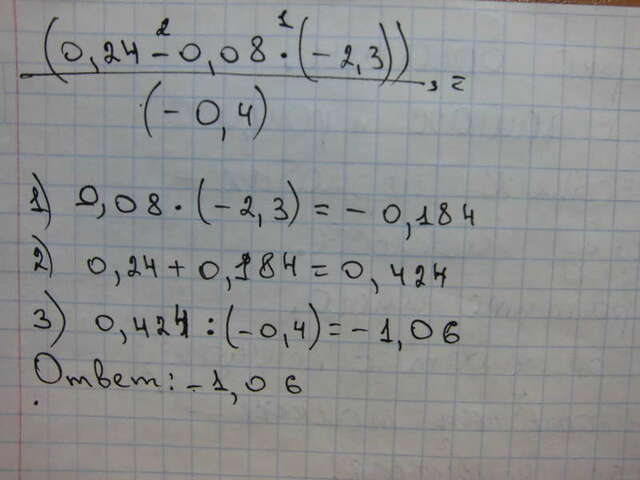 (0,24 - 0,08 · (-2,3))
2 1
(-0,4) =
1) 0,08 · (-2,3) = - 0,184
2) 0,24 + 0,184 = 0,424
3) 0,424 : (-0,4) = -1,06
Ответ: -1,06